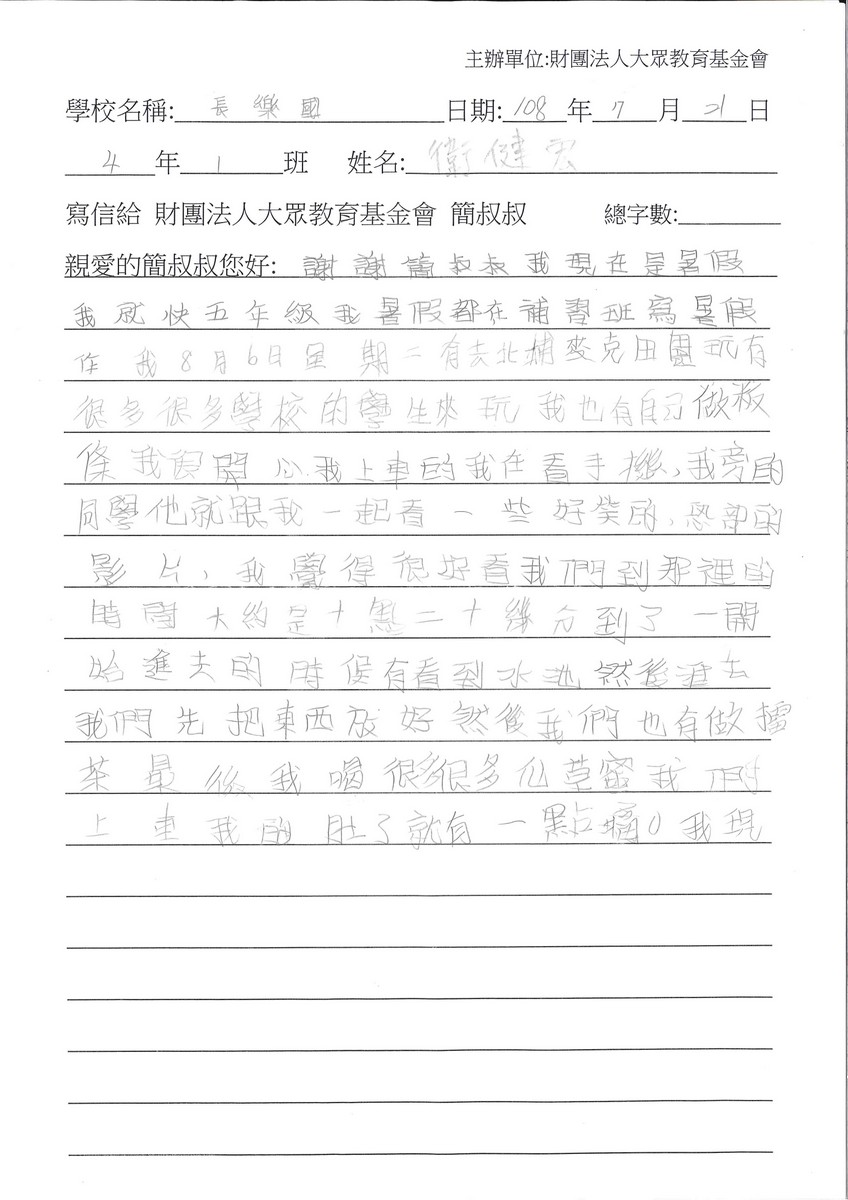 主辦單位:財團法人大眾教育基金會
學校名稱: 長樂國 日期: 108 年 7 月 21 日
4 年 1 班 姓名: 衛健宏
寫信給 財團法人大眾教育基金會 簡叔叔 總字數:
親愛的簡叔叔您好: 謝謝簡叔叔我現在是暑假
我就快五年級我暑假都在補習班寫暑假
作我8月6日星期二有去北埔麥克田園玩有
很多很多學校的學生來玩我也有自己做粄
條我很開心我上車的我在看手機,我旁的
同學他就跟我一起看一些好笑的,恐部的
影片,我覺得很好看我們到那裡的
時間大約是十點二十幾分到了一開
始進去的時候有看到水池然後進去
我們先把東西放好然後我們也有做擂
茶最後我喝很多很多仙草蜜我們
上車我的肚子就有一點痛。我現